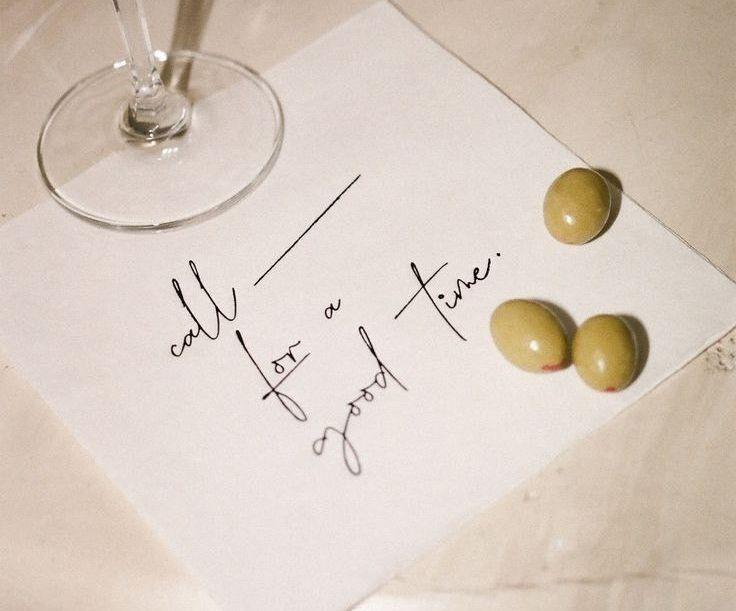 call ___
for a
good time.